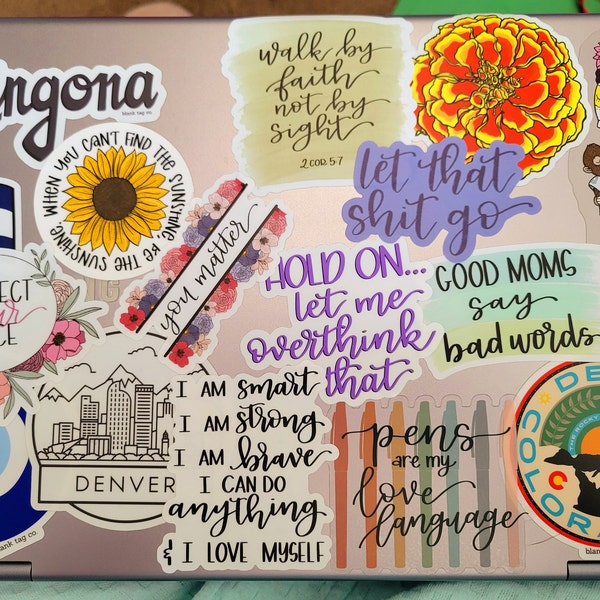 ngona
blank tag co.
walk by
faith
not by
sight
2 COR. 5:7
WHEN YOU CAN'T FIND THE SUNSHINE, BE THE SUNSHINE
let that
shit go
you matter
HOLD ON...
let me
overthink
that
GOOD MOMS
say
bad words
ECT
ur
CE
DENVER
I AM smart
I AM strong
I AM brave
I CAN DO
anything
& I LOVE MYSELF
pens
are my
love
language
DE
COLORA
THE ROCKY
blank tag co.
blan